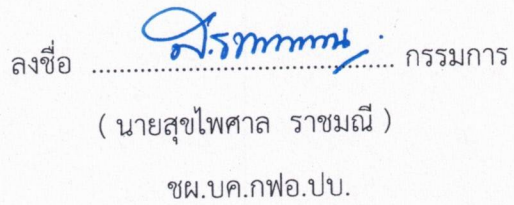 ลงชื่อ ........................................ กรรมการ
( นายสุขไพศาล ราชมณี )
ชผ.บค.กฟอ.ปบ.